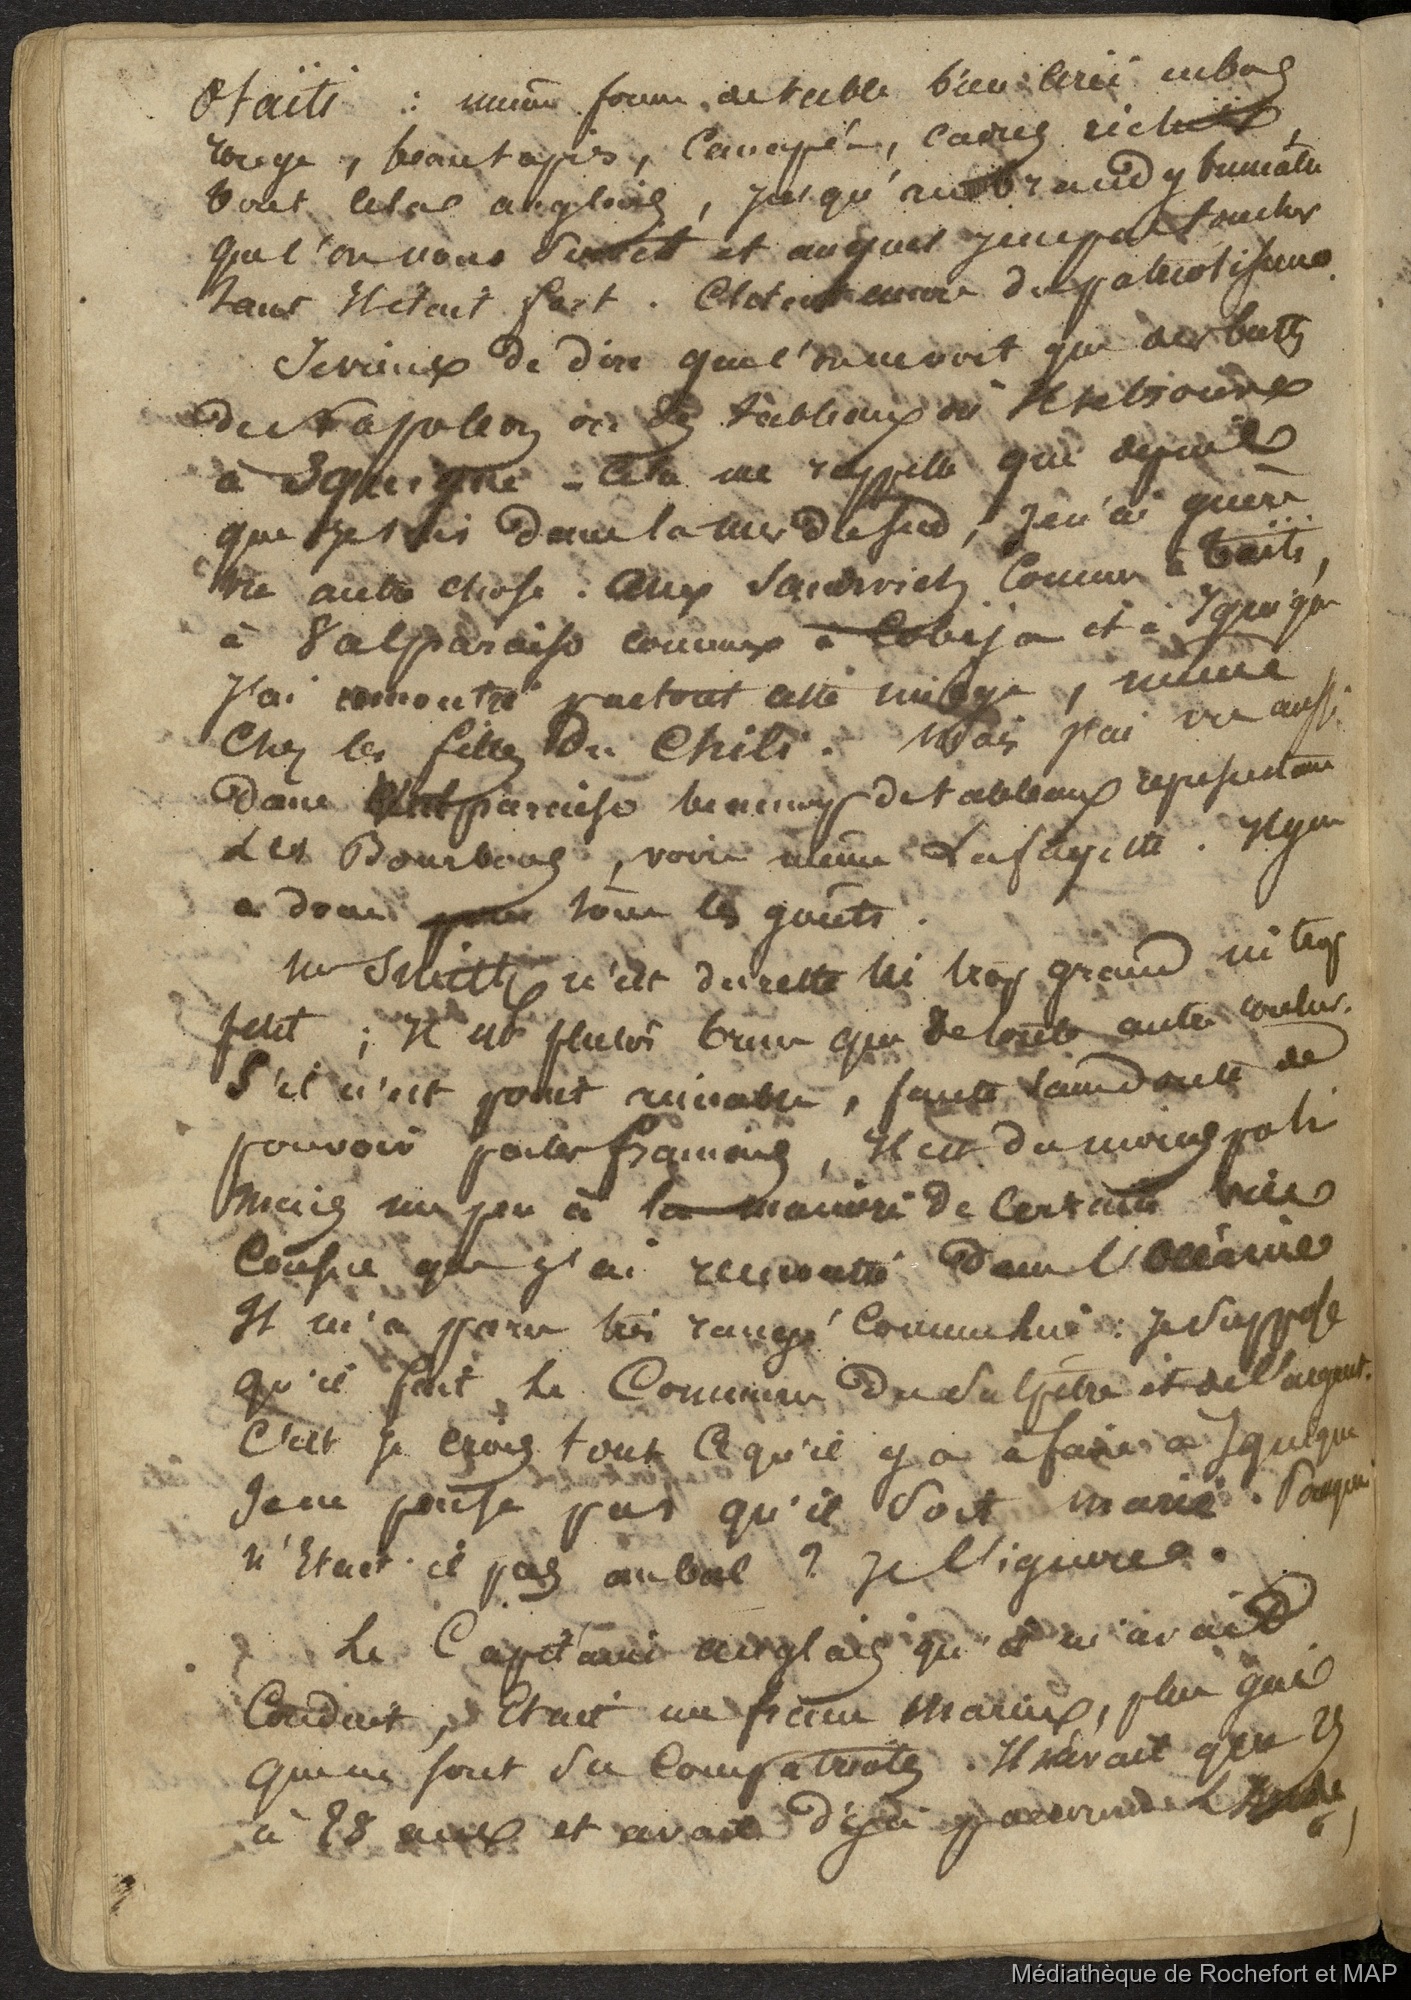 Otaïti : même forme de table bien cirée en bois
rouge, beau tapis, Canapés, cadres riches,
tout était anglais, jusqu'au brandy
que l'on nous servit et auquel je ne pus toucher
tant il était fort. C'était encore du patriotisme.
Je viens de dire que l'on ne voit que des batles
de Napoléon ou des tableaux où il se trouve
à Iquique - Cela me rappelle que depuis
que je suis dans la mer du sud, je n'ai guère
vu autre chose. Aux Sandwich comme à Taïti,
à Valparaiso comme à Cobija et à Iquique
j'ai rencontré partout cette image, même
chez les filles du Chili. Mais j'ai vu aussi
dans Valparaiso beaucoup de tableaux représentant
Les Bourbons, voire même Lafayette. Il y en
a donc pour tous les goûts.
Mr Smith n'est du reste ni trop grand ni trop
petit ; il est plutôt brun que de toute autre couleur.
S'il n'est point aimable, faute sans doute de
pouvoir parler français, il est du moins poli
mais un peu à la manière de certain vice
Consul que j'ai rencontré dans l'Océanie
Il m'a paru très rangé comme lui : je suppose
qu'il fait le Commerce du salpêtre et de l'argent.
C'est je crois tout ce qu'il y a à faire à Iquique
Je ne pense pas qu'il soit marié. Pourquoi
n'était-il pas au bal ? je l'ignore.
Le Capitaine anglais qui m'avait
Conduit, était un franc marin, plus gai
que ne sont ses compatriotes. Il n'avait que 25
à 28 ans et avait déjà parcouru l'Inde,